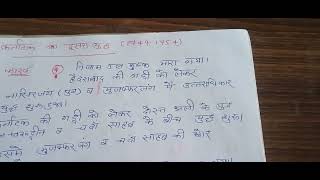 कर्नाटक का दूसरा युद्ध (1749-1754)
कारण निजाम उल मुल्क मारा गया।
हैदराबाद की गद्दी को लेकर
नासिरजंग (पुत्र) व मुजफ्फरजंग में उत्तराधिकार
युद्ध शुरू हुआ।
कर्नाटक की गद्दी को लेकर दोस्त अली के पुत्र
व चन्दा साहब के बीच युद्ध हुआ।
मुजफ्फरजंग व चन्दा साहब की